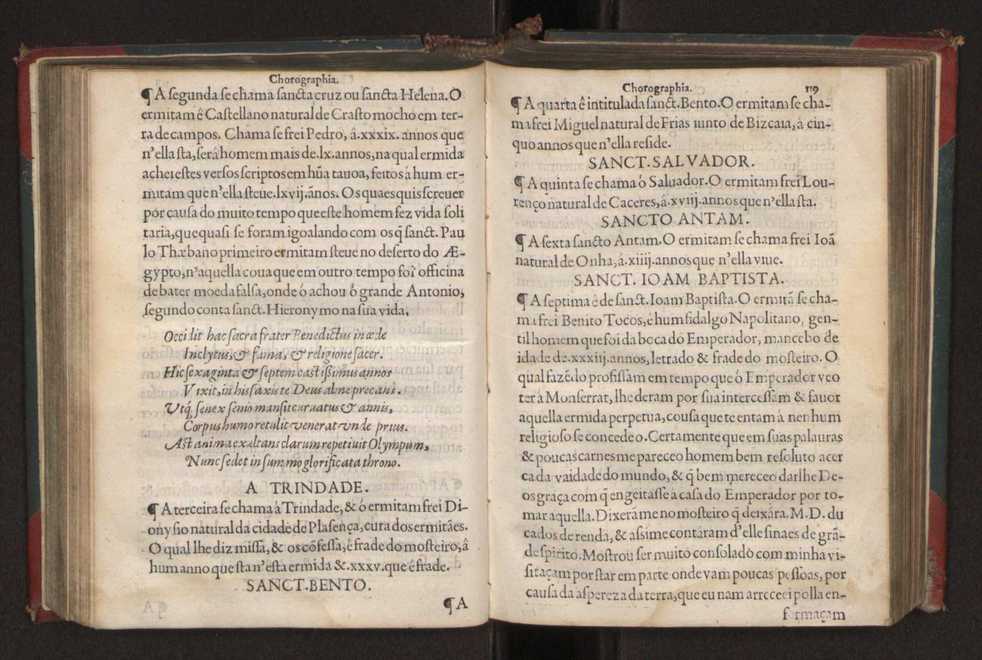 Chorographia.
¶ A segunda se chama sancta cruz ou sancta Helena. O
ermitam ê Castellano natural de Crasto mocho em ter-
ra de campos. Chama se frei Pedro, â .xxxix. annos que
n'ella sta, serâ homem mais de .lx. annos, na qual ermida
achei estes versos scriptos em hũa tauoa, feitos â hum er-
mitam que n'ella steue .lxvij. ãnos. Os quaes quis screuer
por causa do muito tempo que este homem fez vida soli
taria, que quasi se foram igoalando com os q̃ sanct. Pau
lo Thæbano primeiro ermitam steue no deserto do Æ-
gypto, n'aquella coua que em outro tempo foi officina
de bater moeda falsa, onde ó achou ó grande Antonio,
segundo conta sanct. Hieronymo na sua vida.
Occidit hac sacra frater Benedictus in æde
Inclytus, & fama, & religione sacer.
Hic sexaginta & septem castissimus annos
Vixit, in his saxis te Deus alme precans.
Vtq̃, senex senio mansit curuatus & annis,
Corpus humo retulit venerat vnde prius.
Ast anima exultans clarum repetiuit Olympum,
Nunc sedet in summo glorificata throno.
A TRINDADE.
¶ A terceira se chama à Trindade, & ó ermitam frei Di-
onysio natural da cidade de Plasença, cura dos ermitães.
O qual lhe diz missa, & os cõfessa, ê frade do mosteiro, â
hum anno que sta n'esta ermida & .xxxv. que ê frade.
SANCT. BENTO.
¶ A
Chorographia. 119
¶ A quarta ê intitulada sanct. Bento. O ermitam se cha-
ma frei Miguel natural de Frias iunto de Bizcaia, â cin-
quo annos que n'ella reside.
SANCT. SALVADOR.
¶ A quinta se chama ó Saluador. O ermitam frei Lou-
renço natural de Caceres, â .xviij. annos que n'ella sta.
SANCTO ANTAM.
¶ A sexta sancto Antam. O ermitam se chama frei Ioã
natural de Onha, â .xiiij. annos que n'ella viue.
SANCT. IOAM BAPTISTA.
¶ A septima ê de sanct. Ioam Baptista. O ermitã se cha-
ma frei Benito Tocos, ê hum fidalgo Napolitano, gen-
til homem que foi da boca do Emperador, mancebo de
idade de .xxxiij. annos, letrado & frade do mosteiro. O
qual fazẽdo profissam em tempo que ó Emperador veo
ter à Monserrat, lhe deram por sua intercessam & fauor
aquella ermida perpetua, cousa que te entam à nenhum
religioso se concedeo. Certamente que em suas palauras
& poucas carnes me pareceo homem bem resoluto acer
ca da vaidade do mundo, & q̃ bem mereceo dar lhe De-
os graça com q̃ engeitasse à casa do Emperador por to-
mar aquella. Dixerã me no mosteiro q̃ deixâra .M.D. du
cados de renda, & assi me contâram d'elle sinaes de grã-
de spirito. Mostrou ser muito consolado com minha vi-
sitaçam por star em parte onde vam poucas pessoas, por
causa da aspereza da terra, que eu nam arreceei polla en-
formaçam